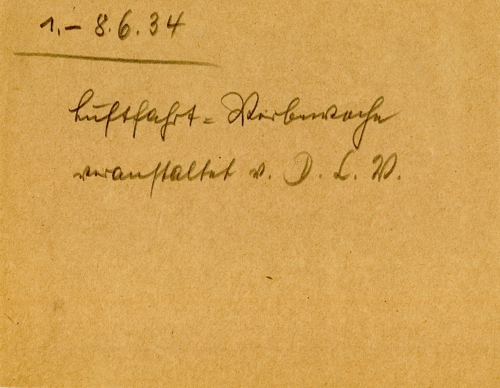 1.– 8.6.34
Luftfahrt = Werbewoche
veranstaltet v. D. L. V.